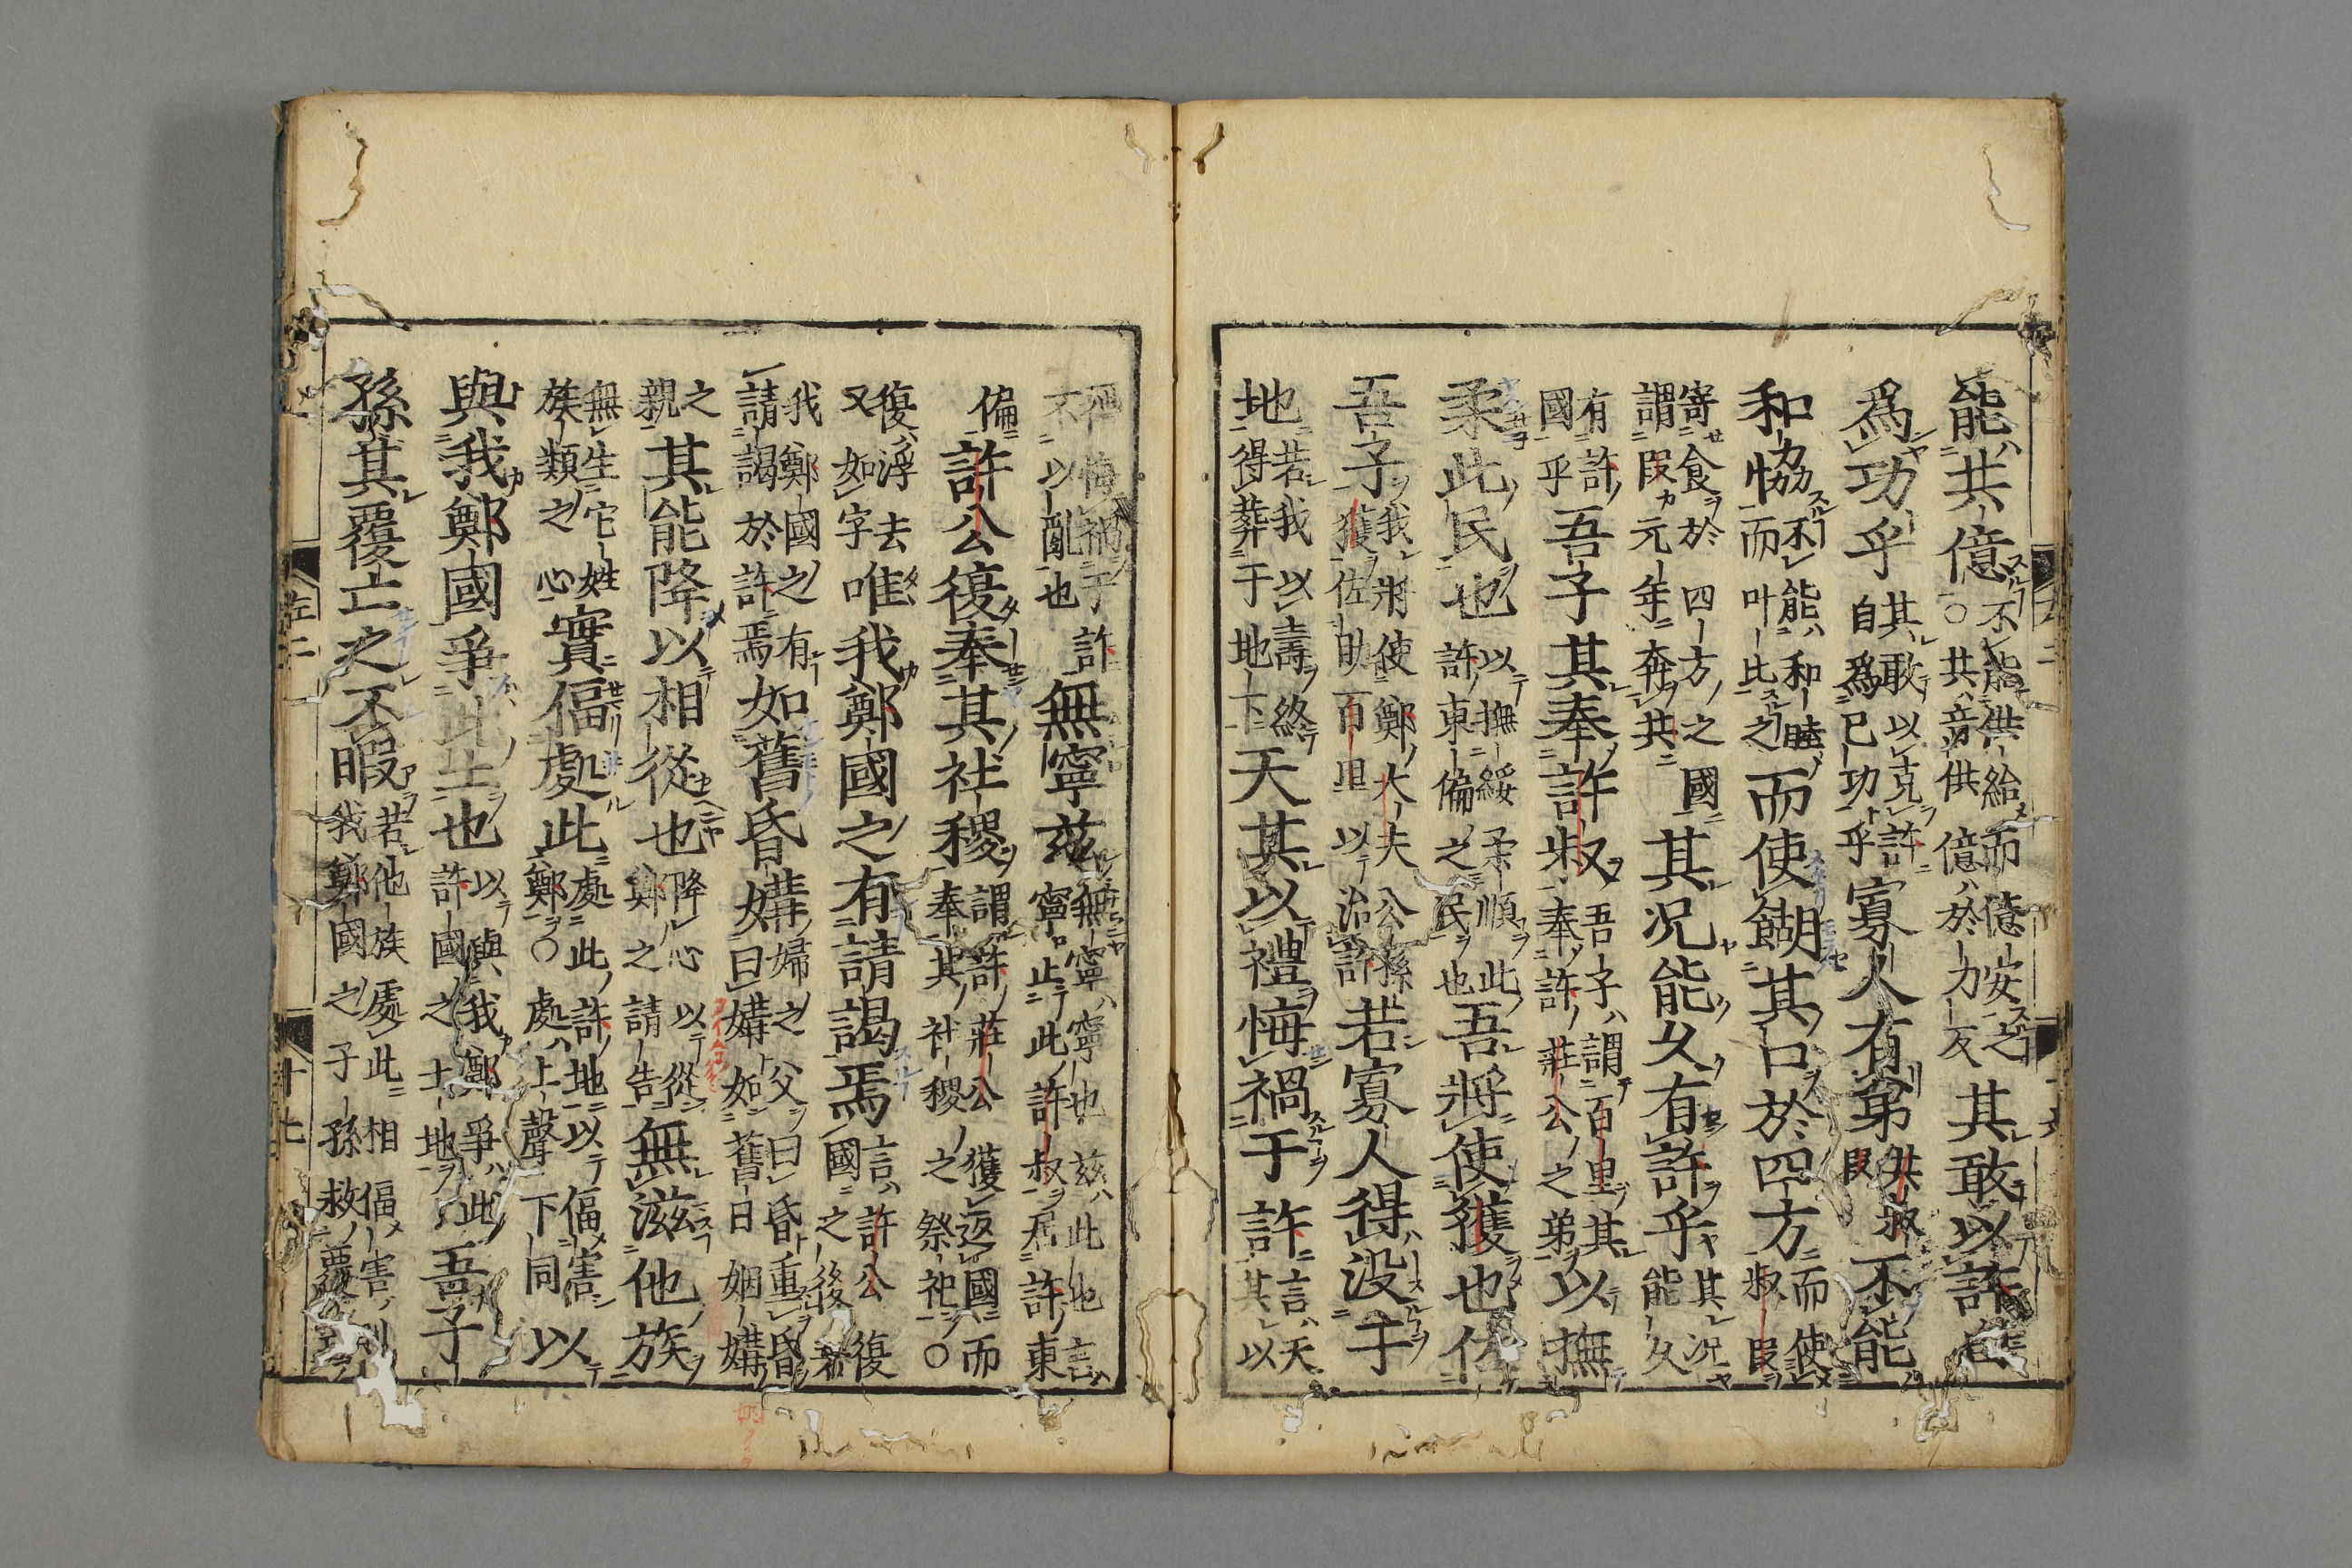 能共億不能供給而億安之○共音供億於力反其敢以許自
爲功乎其敢以克許自爲已功乎寡人有弟共叔段不能
和協不能和睦而叶比之而使餬其口於四方而使叔段
寄食於四方之國謂段元年奔共其况能久有許乎其况能久
有許國乎吾子其奉許叔吾子謂百里其奉許莊公之弟以撫
柔此民也以撫綏柔順此許東偏之民也吾將使獲也佐
吾子我將使鄭大夫公孫獲佐助百里以治許若寡人得没于
地若我以壽終得葬于地下天其以禮悔禍于許言天其以
禮悔禍于許不以亂也無寧兹無寧寧也兹此地言寧止此許叔居許東
偏許公復奉其社稷謂許莊公獲返國而奉其社稷之祭祀○
復浮去又如字唯我鄭國之有請謁焉言許公復國之後若
我鄭國之有請謁於許焉如舊昏媾婦之父曰昏重昏曰媾如舊日姻媾
之親其能降以相從也降心以從鄭之請告無滋他族
無生它姓族類之心實偪處此處此許地以偪害鄭○處上聲下同以
與我鄭國爭此土也以與我鄭爭此許國之土地吾子
孫其覆亡之不暇若他族處此相偪害則我鄭國之子孫救
左二
十七